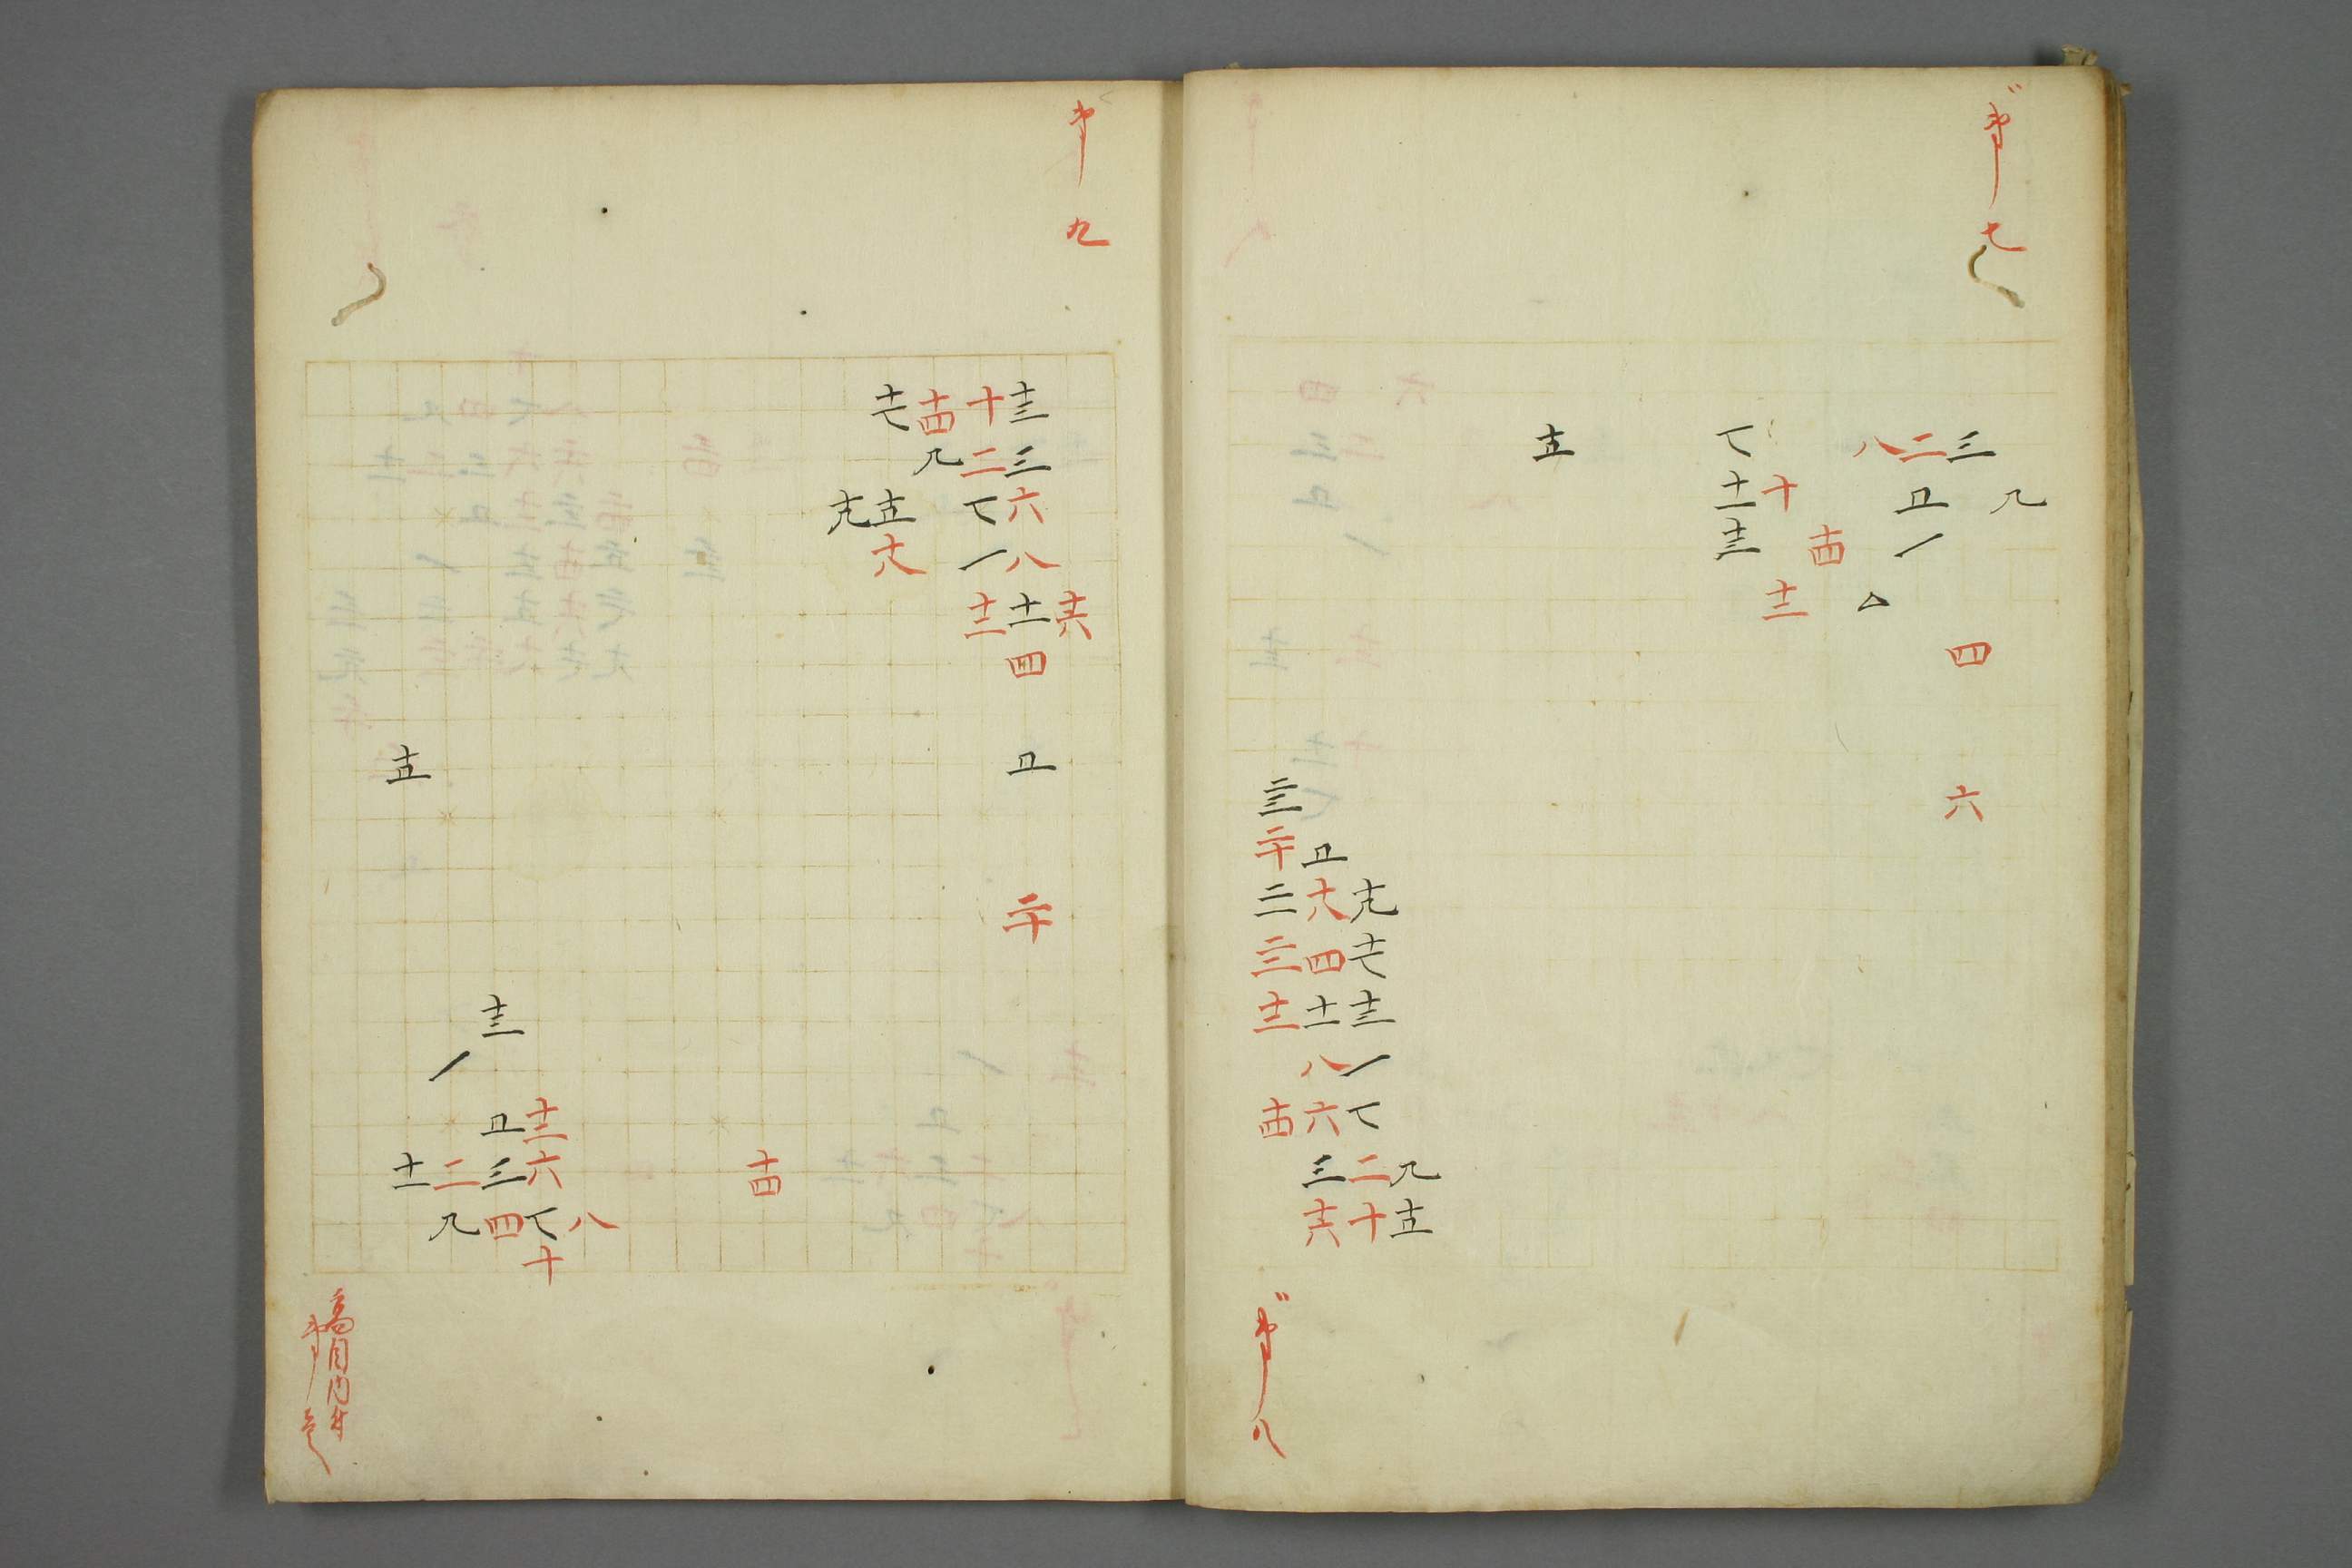 第七
九
三 四 六
二 五 一
八 △
十四
十 十二
七 十一 十三
十五
第八
九 十五
十九 十七 十三 一 七 二 十
五 十八 四 十一 八 六 三 十六
二三 二十 二一 二二 十二 十四
第九
十六
十三 三 六 八 十一 四 五 二十
十 二 七 一 十二
十四 九
十七 十五 十八
十九
高目内
第壱
十四
八
十二 六 七 十
十三 五 三 四
一 二 九
十五 十一